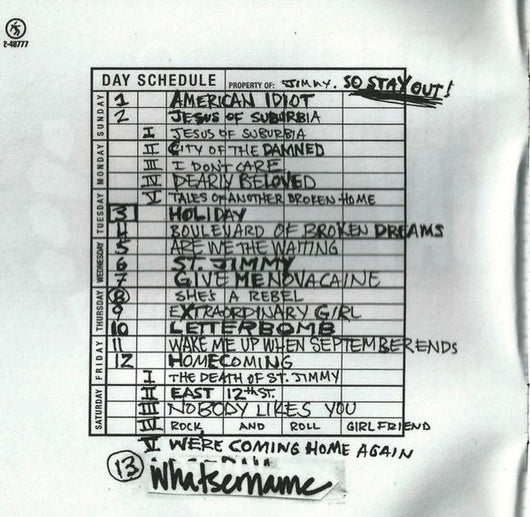 2-48777
DAY SCHEDULE PROPERTY OF: JIMMY. SO STAY OUT!
SUNDAY
1 AMERICAN IDIOT
2 JESUS OF SUBURBIA
I JESUS OF SUBURBIA
MONDAY
II CITY OF THE DAMNED
III I DON'T CARE
IV DEARLY BELOVED
V TALES OF ANOTHER BROKEN HOME
TUESDAY
3 HOLIDAY
4 BOULEVARD OF BROKEN DREAMS
5 ARE WE THE WAITING
WEDNESDAY
6 ST. JIMMY
7 GIVE ME NOVACAINE
THURSDAY
8 SHE'S A REBEL
9 EXTRAORDINARY GIRL
10 LETTERBOMB
FRIDAY
11 WAKE ME UP WHEN SEPTEMBER ENDS
12 HOMECOMING
I THE DEATH OF ST. JIMMY
SATURDAY
II EAST 12th ST.
III NOBODY LIKES YOU
IV ROCK, AND ROLL GIRLFRIEND
V WERE COMING HOME AGAIN
13 Whatsername